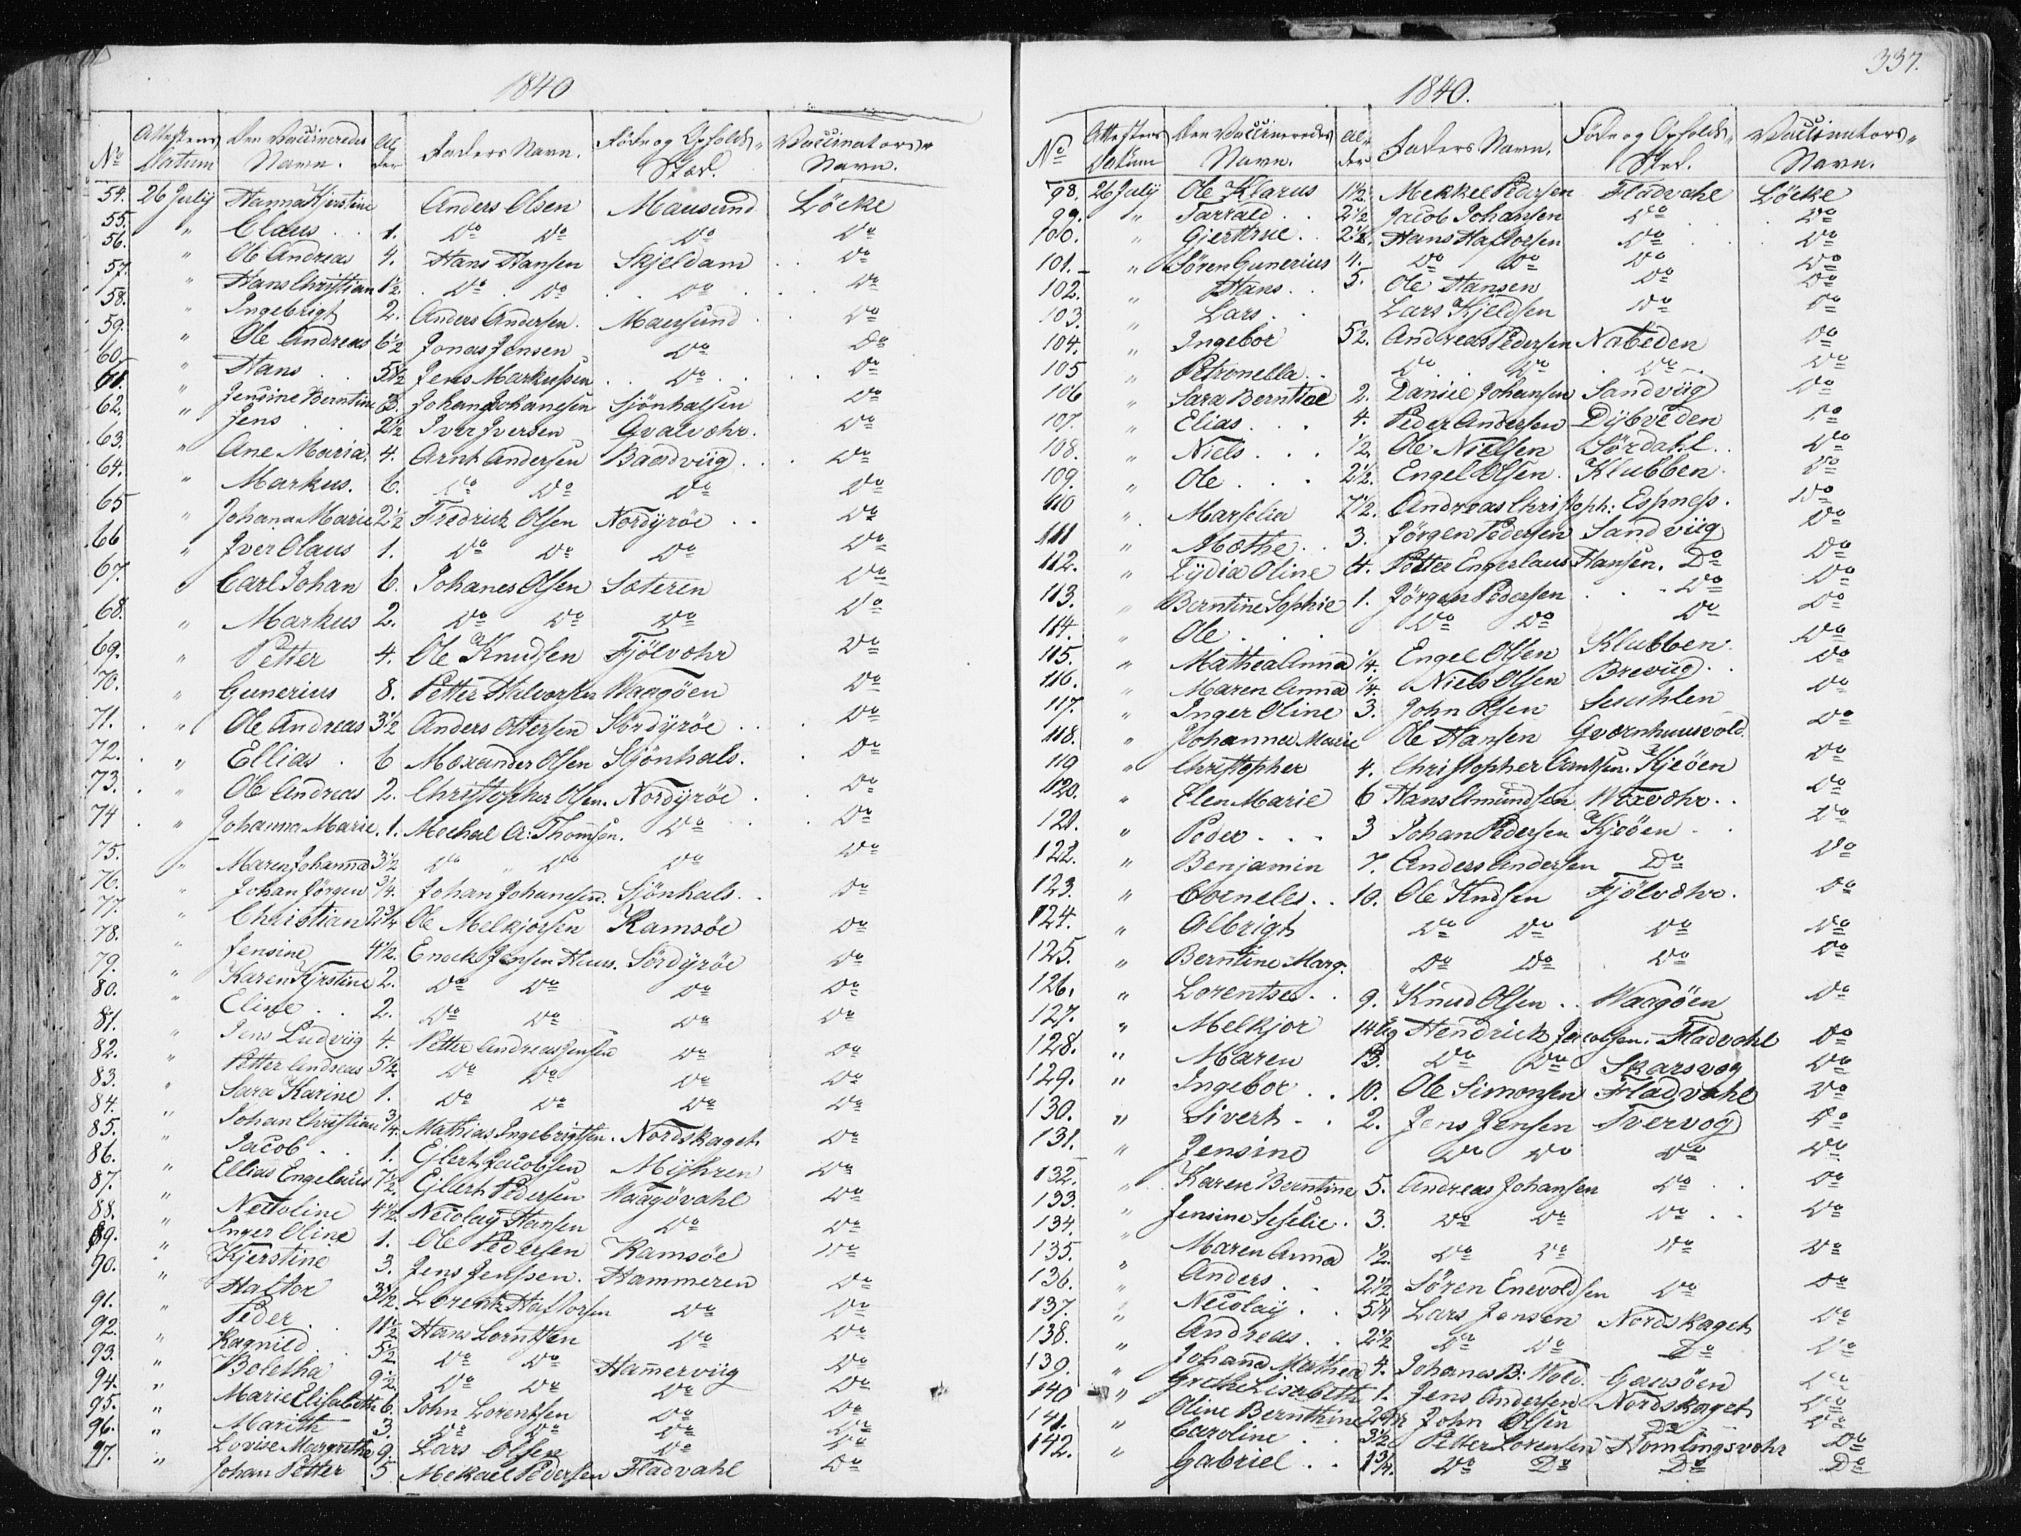 1840
No Attestens Datum Den Vaccineredes Navn. Alder Faders Navn. Føde og Opholds Stæd. Vaccinators Navn.
54. 26 July Hanna Kjerstine Anders Olsen Mausund Löcke
55. " Claus . . 1. Do Do Do Do
56. " Ole Andreas 4. Hans Hansen Skjeldam . . Do
57. " Hans Christian 1½. Do . Do . . Do . . Do
58. " Ingebrigt 2. Anders Andersen. Mausund . Do
59. " Ole Andreas 6½ Jonas Jensen Do Do
60. " Hans . . 5½ Jens Markussen . . Do . . . . Do
61. " Jensine Berntine 3. Johan Johanesen Sjönhalsen Do
62. " Jens . . 2½ Iver Iversen Qvalvæhr. Do
63. " Ane Maria. 4. Arnt Andersen Baadviig . . . . Do
64. " Markus. 6. Do Do Do Do
65 " Johana Marie 2½ Fredrick Olsen Nordÿröe . . Do
66 " Iver Olaus 1. Do Do Do Do
67. " Carl Johan 6. Johanes Olsen Sæteren Do
68. " Markus 2. Do Do Do Do
69. " Petter 4. Ole Knudsen Fjölvæhr Do
70. " Gunerius 8. Petter Halvorsen Waagöen Do
71. . " Ole Andreas 3½ Anders Ottersen Sördÿröe . . . Do
72. . " Ellias . 6 Alexander Olsen Sjönhals. . Do
73. . " Ole Andreas 2. Christopher Olsen. Nordÿröe . Do
74 . " Johanna Marie. 1. Mechal A: Thomsen. Do . . Do
75. " Maren Johanna 3½ Do " Do Do Do
76. " Johan Jörgen ¾. Johan Johanesen. Sjönhals. . Do
77. " Christian 2¾ Ole Melkjorsen Ramsöe Do
78. " Jensine 4½. Enock Jensen Huus. Sördÿröe Do
79. " Karen Kjrstine 2. Do Do Do Do
80. " Eline . . 2. Do Do Do Do
81. " Jens Ludviig 4. Petter Andreas Jensen Do Do
82. " Petter Andreas 5½. Do Do Do Do
83. " Sara Karine 1. Do Do Do Do
84. " Johan Christian ¾. Mathias Ingebrigtsen. Nordskaget Do
85. " Jacob . . 1. Ejlert Jacobsen Mÿhren Do
86. " Ellias Engelaus 7½. Ejlert Pedersen Waagövahl Do
87. " Nettoline 4½. Nicolaÿ Hansen Do Do
88. " Inger Oline 1. Ole Pedersen Ramsöe Do
89. " Kjerstine 3. Jens Jenssen. Hammeren Do
90. " Haltor 3½. Lorentz Haftorsen Do Do
91. " Peder. . 11½ Hans Lorntsen Do Do
92. " Ragnild 5½ Do Do Hamerviig Do
93. " Boletha 9½ Do Do Do Do
94. " Marie Elisabeth 6. John Lorentsen Do Do
95. " Marith 3. Do Do Do Do
96. " Lovise Margretha 9. Lars Olsen Do Do
97. " Johan Petter 5 Mekael Pedersen Fladvahl Do
337.
1840.
No Attestens Datum Den Vaccineredes Navn. Alder Faders Navn. Føde og Opholds Stæd. Vaccinators Navn.
98. 26 July Ole Klarus 1½. Mekkel Pedersen Fladvahl Löcke
99. " Tarrald . . 2½ Jacob Johansen Do . Do
100. " Gjertrue. . 2½. Hans Haftorsen Do . . Do
101. " Sören Gunerius 4. Do Do Do Do
102. " Hans . . 5. Ole Hansen Do Do
103. " Lars . . Lars Kjeldsen Do Do
104. " Ingebor 5½. Andreas Pedersen Nabeden Do
105 " Petronella. . Do . Do . Do . Do
106 " Sara Berntsoe 2. Daniel Johansen Sandviig Do
107. " Elias . . . 4. Peder Andersen Dÿbveden Do
108. " Niels . . . ½. Ole Nielsen Sördahl. . Do
109. " Ole . . . 2½. Engel Olsen . Klubben . Do
110 " Marselia 7½. Andreas Christoph: Espness. Do
111 " Mæthe. . 3. Jörgen Pedersen Sandviig Do
112. " Lÿdia Oline 4. Petter Engeslaus Hansen. Do Do
113. " Berntine Sophie 1. Jörgen Pedersen . . . Do Do
114. " Ole . . . Do Do Do Do
115. " Mathea Anna ¼. Engel Olsen Klubben. Do
116. " Maren Anna ¼. Niels Olsen Breviig. . Do
117. " Inger Oline 3. John Olsen Do
118. " Johanna Marie Ole Hansen Qværnhuusvold. Do
119 " Christopher 4. Christopher Kjeöen Do
120. " Elen Marie 6 Hans Amundsen Waxvæhr. . Do
121. " Peder. . . 3 Johan Pedersen Kjeöen . . Do
122. " Benjamin 7. Anders Andersen Do Do
123. " Corneles. . 10. Ole Knudsen Fjölvæhr. Do
124. " Albrigt Do Do Do Do
125. " Berntine Marg. Do Do Do Do
126. " Lorentse. . 9. Knud Olsen . . Waagöen Do
127. " Melkjor 14 Hendrick Jacobsen. Fladvahl Do
128. " Maren 13. Do Do Skarsvog Do
129. " Ingebor . . 10. Ole Simonsen Fladvahl Do
130. " Sivert . . 2. Jens Jensen Tvervog Do
131. " Jensine Do Do Do Do
132. " Karen Berntine 5. Andreas Johansen Do . . Do
133. " Jensine Seselie. 3. Do Do Do . . Do
134. " Maren Anna ½. Do Do Do Do
135. " Anders . 2½ Sören Enevoldsen Do Do
136. " Nicolaÿ . . 5¼ Lars Jensen Nordskaget Do
137. " Andreas. . 2½ Do Do Do Do
138. " Johana Mathea 4. Johanes B: Wold. Gaasöen Do
139. " Grethe Lisabeth 1. Jens Andersen Nordskaget Do
140 " Oline Bernthine John Olsen Do Do
141. " Caroline . . 3½ Petter Lorensen Homlingsvæhr Do
142. " Gabriel . . 1¾. Do Do Do Do